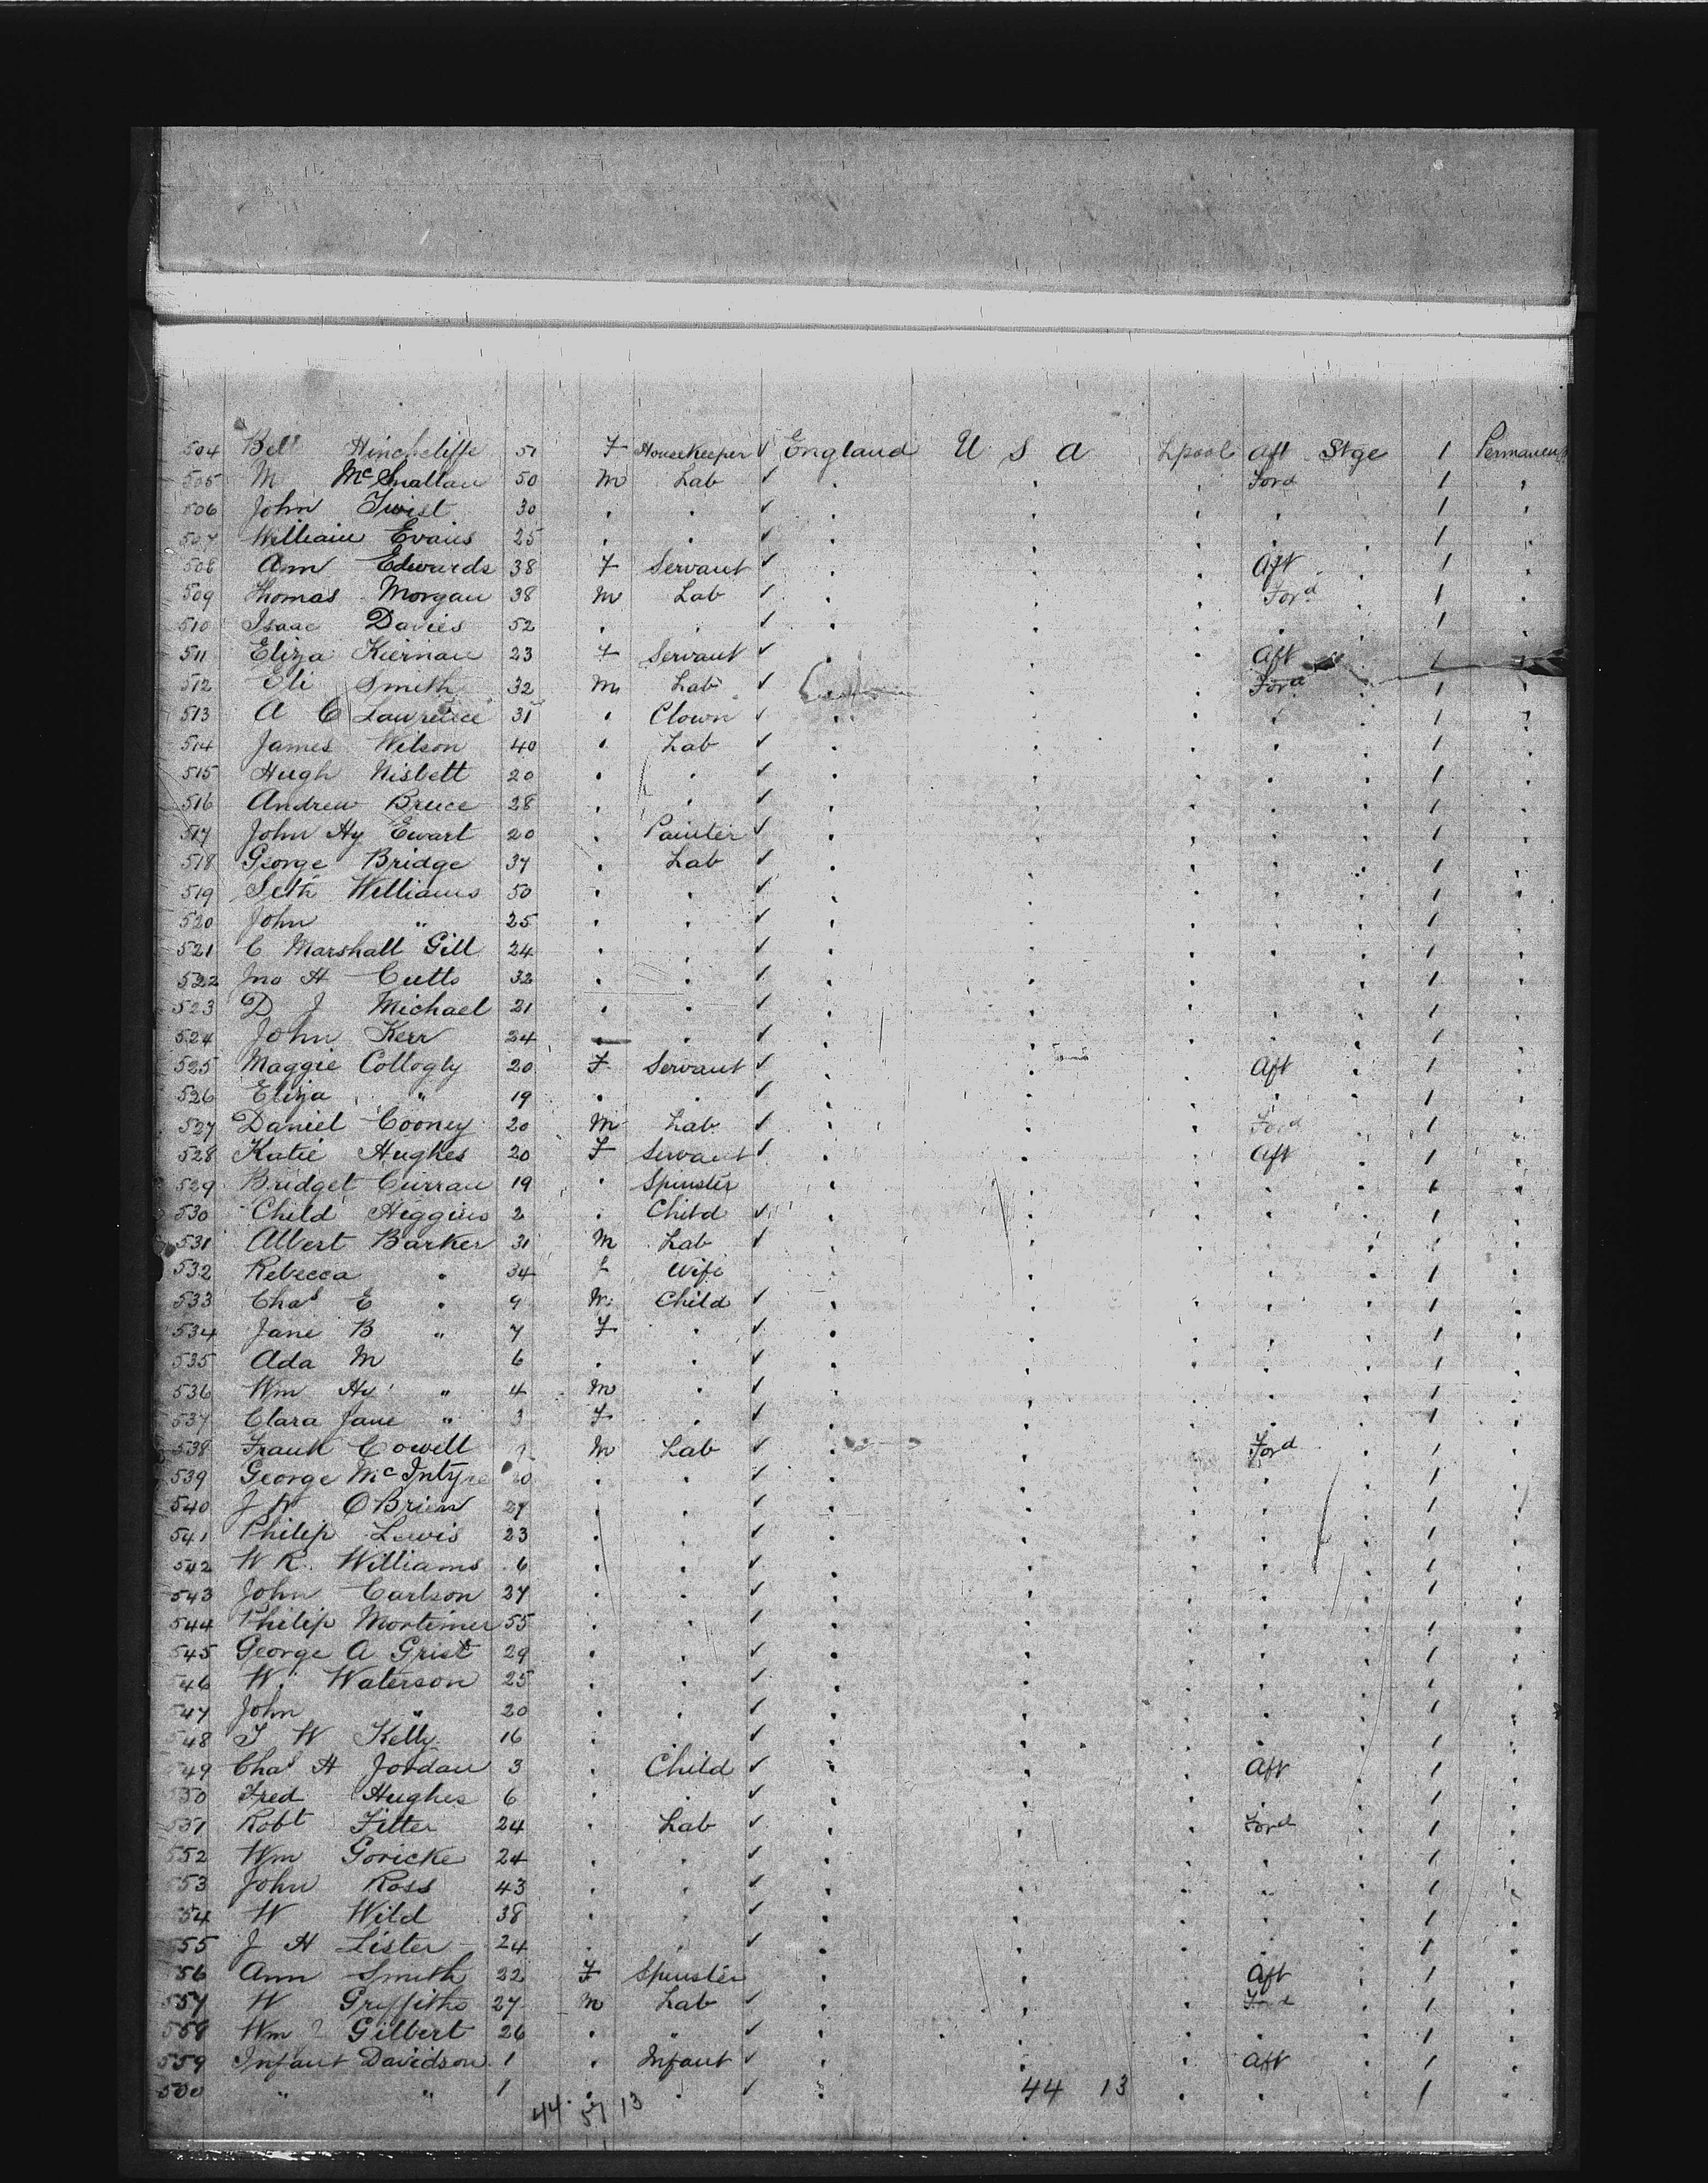 504 Bell Hinchcliffe 51 F Housekeeper ✓ England U S A Lpool Aft Stge 1 Permanent
505 M McSmallan 50 M Lab ✓ . . . Ford 1 .
506 John Twist 30 . . ✓ . . . . . 1 .
507 William Evans 25 . . ✓ . . . . . 1
508 Ann Edwards 38 F Servant ✓ . . . Aft . 1 .
509 Thomas Morgan 38 M Lab ✓ . . . Ford . 1 .
510 Isaac Davies 52 . . ✓ . . . . . 1 .
511 Eliza Kiernan 23 F Servant ✓ . . . Aft 1
512 Eli Smith 32 M Lab ✓ . . . Ford . 1 .
513 A C Lawrence 31 . Clown ✓ . . . . . 1 .
514 James Wilson 40 . Lab ✓ . . . . . 1 .
515 Hugh Nisbett 20 . . ✓ . . . . . 1 .
516 Andrew Bruce 28 . . ✓ . . . . . 1 .
517 John Hy Ewart 20 . Painter ✓ . . . . . 1 .
518 George Bridge 37 . Lab ✓ . . . . . 1 .
519 Seth Williams 50 . . ✓ . . . . . 1 .
520 John " 25 . . ✓ . . . . . 1 .
521 C Marshall Gill 24 . . ✓ . . . . . 1 .
522 Jno H Cutts 32 . . ✓ . . . . . 1 .
523 D J Michael 21 . . ✓ . . . . . 1 .
524 John Kerr 24 . . ✓ . . . . . 1 .
525 Maggie Collogly 20 F Servant ✓ . . . Aft . 1 .
526 Eliza " 19 . . ✓ . . . . . 1 .
527 Daniel Cooney 20 M Lab ✓ . . . Ford . 1 .
528 Katie Hughes 20 F Servant ✓ . . . Aft . 1 .
529 Bridget Curran 19 . Spinster . . . . . 1 .
530 Child Higgins 2 . Child ✓ . . . . . 1 .
531 Albert Barker 31 M Lab ✓ . . . . . 1 .
532 Rebecca " 34 F Wife . . . . . 1 .
533 Chas E " 9 M Child ✓ . . . . . 1 .
534 Jane B " 7 F . ✓ . . . . . 1 .
535 Ada M 6 . . ✓ . . . . . 1 .
536 Wm Hy " 4 M . ✓ . . . . . 1 .
537 Clara Jane " 3 F . ✓ . . . . . 1 .
538 Frank Cowell M Lab ✓ . . . Ford . 1 .
539 George McIntyre . . ✓ . . . . . 1 .
540 J W OBrien 27 . . ✓ . . . . . 1 .
541 Philip Lewis 23 . . ✓ . . . . . 1 .
542 W R Williams . . ✓ . . . . . 1 .
543 John Carlson 27 . . ✓ . . . . . 1 .
544 Philip Mortimer 55 . . ✓ . . . . . 1 .
545 George A Grist 29 . . ✓ . . . . . 1 .
46 W. Waterson 25 . . ✓ . . . . . 1 .
47 John " 20 . . ✓ . . . . . 1 .
548 T W Kelly 16 . . ✓ . . . . . 1 .
549 Chas H Jordan 3 . Child ✓ . . . Aft . 1 .
550 Fred Hughes 6 . . ✓ . . . . . 1 .
551 Robt Fitter 24 . Lab ✓ . . . Ford . 1 .
552 Wm Goricke 24 . . ✓ . . . . . 1 .
553 John Ross 43 . . ✓ . . . . . 1 .
54 W Wild 38 . . ✓ . . . . . 1 .
55 J H Lister 24 . . ✓ . . . . . 1 .
56 Ann Smith 22 F Spinster . . . Aft . 1 .
557 W Griffiths 27 M Lab ✓ . . . Ford . 1 .
558 Wm Gilbert 26 . " ✓ . . . . . 1 .
559 Infant Davidson 1 . Infant ✓ . . . Aft . 1 .
500 " " 1 . . ✓ . 44 13 . . . 1 .
44 57 13